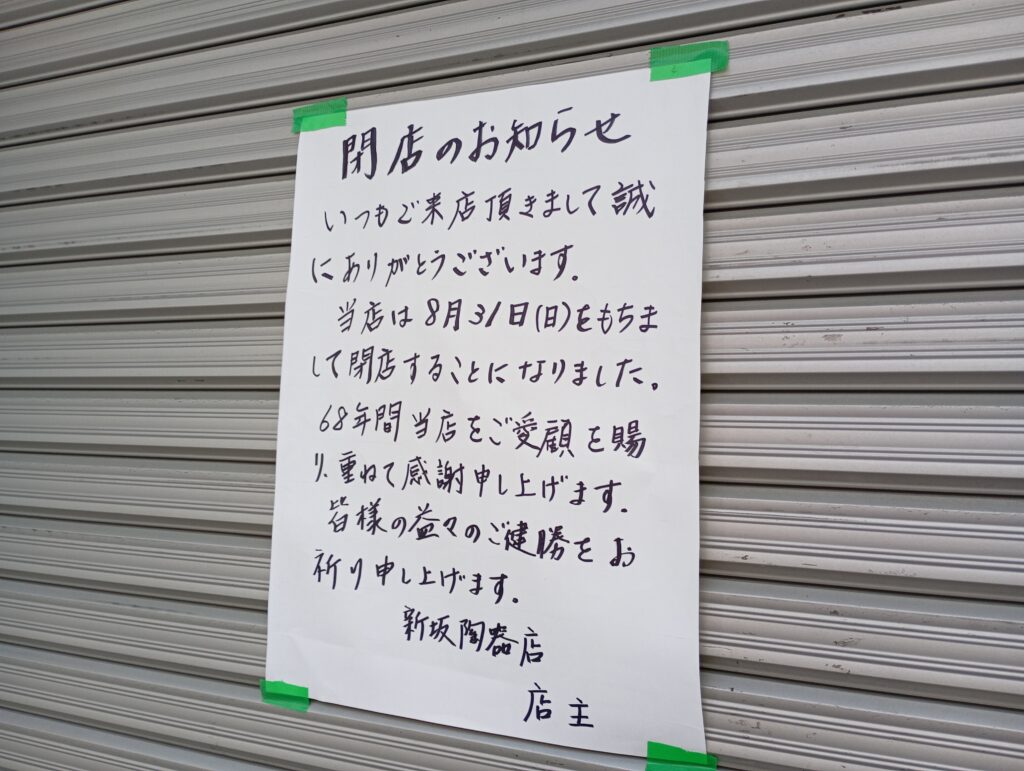 閉店のお知らせ
いつもご来店頂きまして誠
にありがとうございます.
当店は8月31日(日)をもちま
して閉店することになりました。
68年間当店をご愛顧を賜
り、重ねて感謝申し上げます.
皆様の益々のご健勝をお
祈り申し上げます.
新坂陶器店
店主